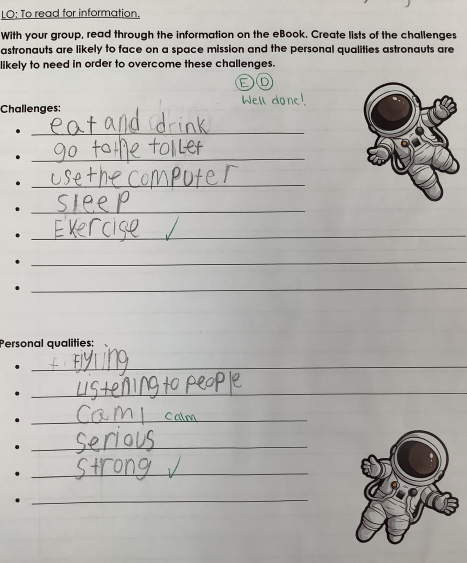 LO: To read for information.
With your group, read through the information on the eBook. Create lists of the challenges
astronauts are likely to face on a space mission and the personal qualities astronauts are
likely to need in order to overcome these challenges.
E D
Well done!
Challenges:
eat and drink
go to the toilet
use the computer
sleep
Exercise ✓
Personal qualities:
Flying
Listening to people
Caml calm
serious
strong ✓